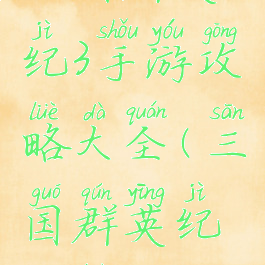 jì shǒu yóu gōng
纪3手游攻
lüè dà quán sān
略大全(三
guó qún yīng jì
国群英纪